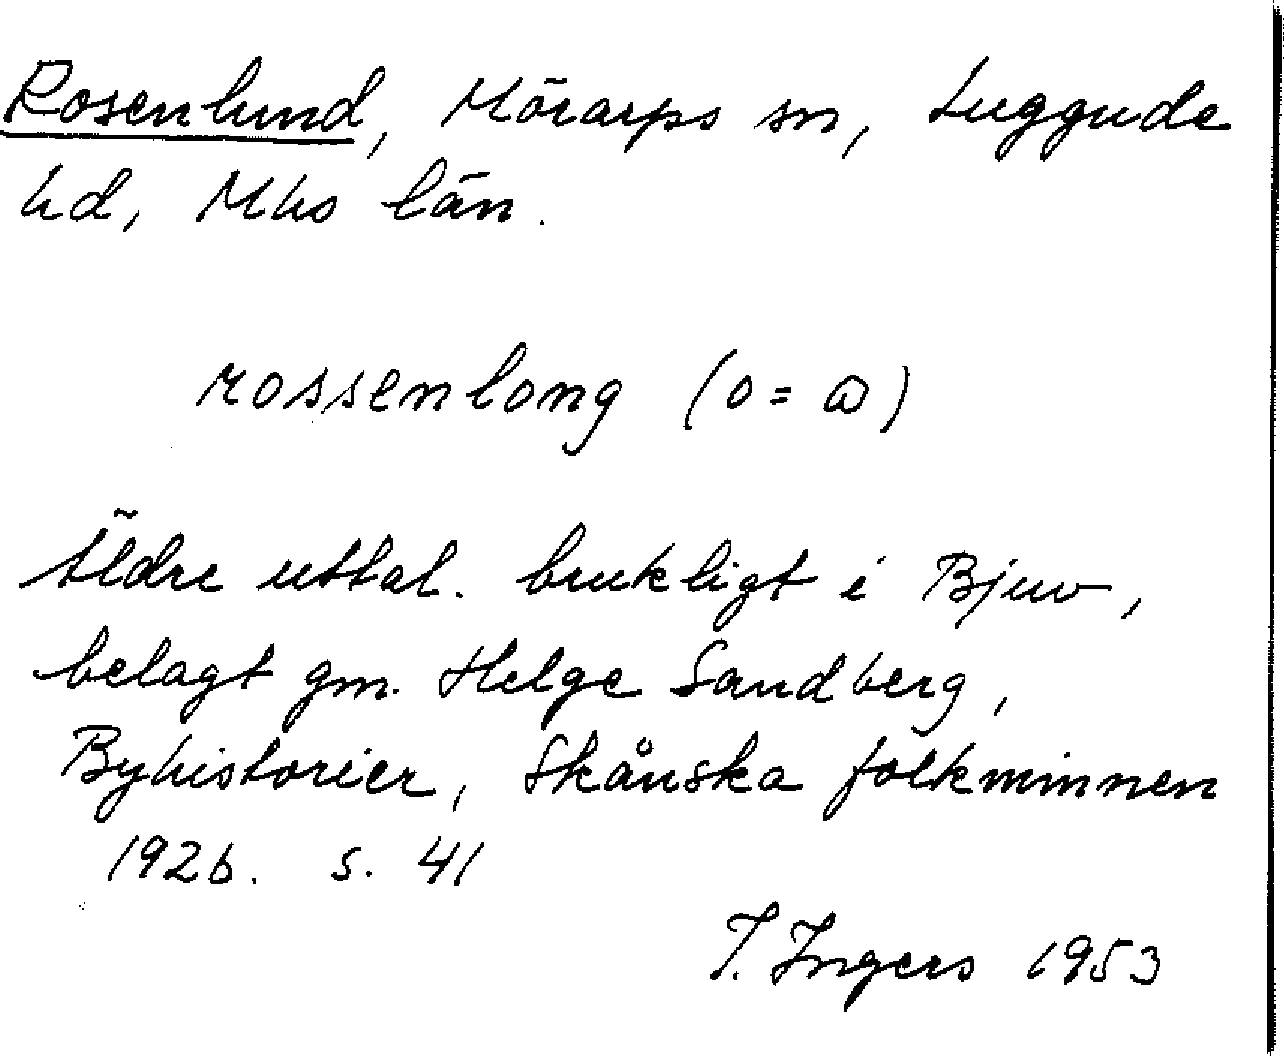 Rosenlund, Mörarps sn, Luggude
hd, Mhs län.
rossenlong (o = ɷ)
Äldre uttal. brukligt i Bjuv,
belagt gm. Helge Sandberg,
Byhistorier, Skånska folkminnen
1926. s. 41
I. Ingers 1953